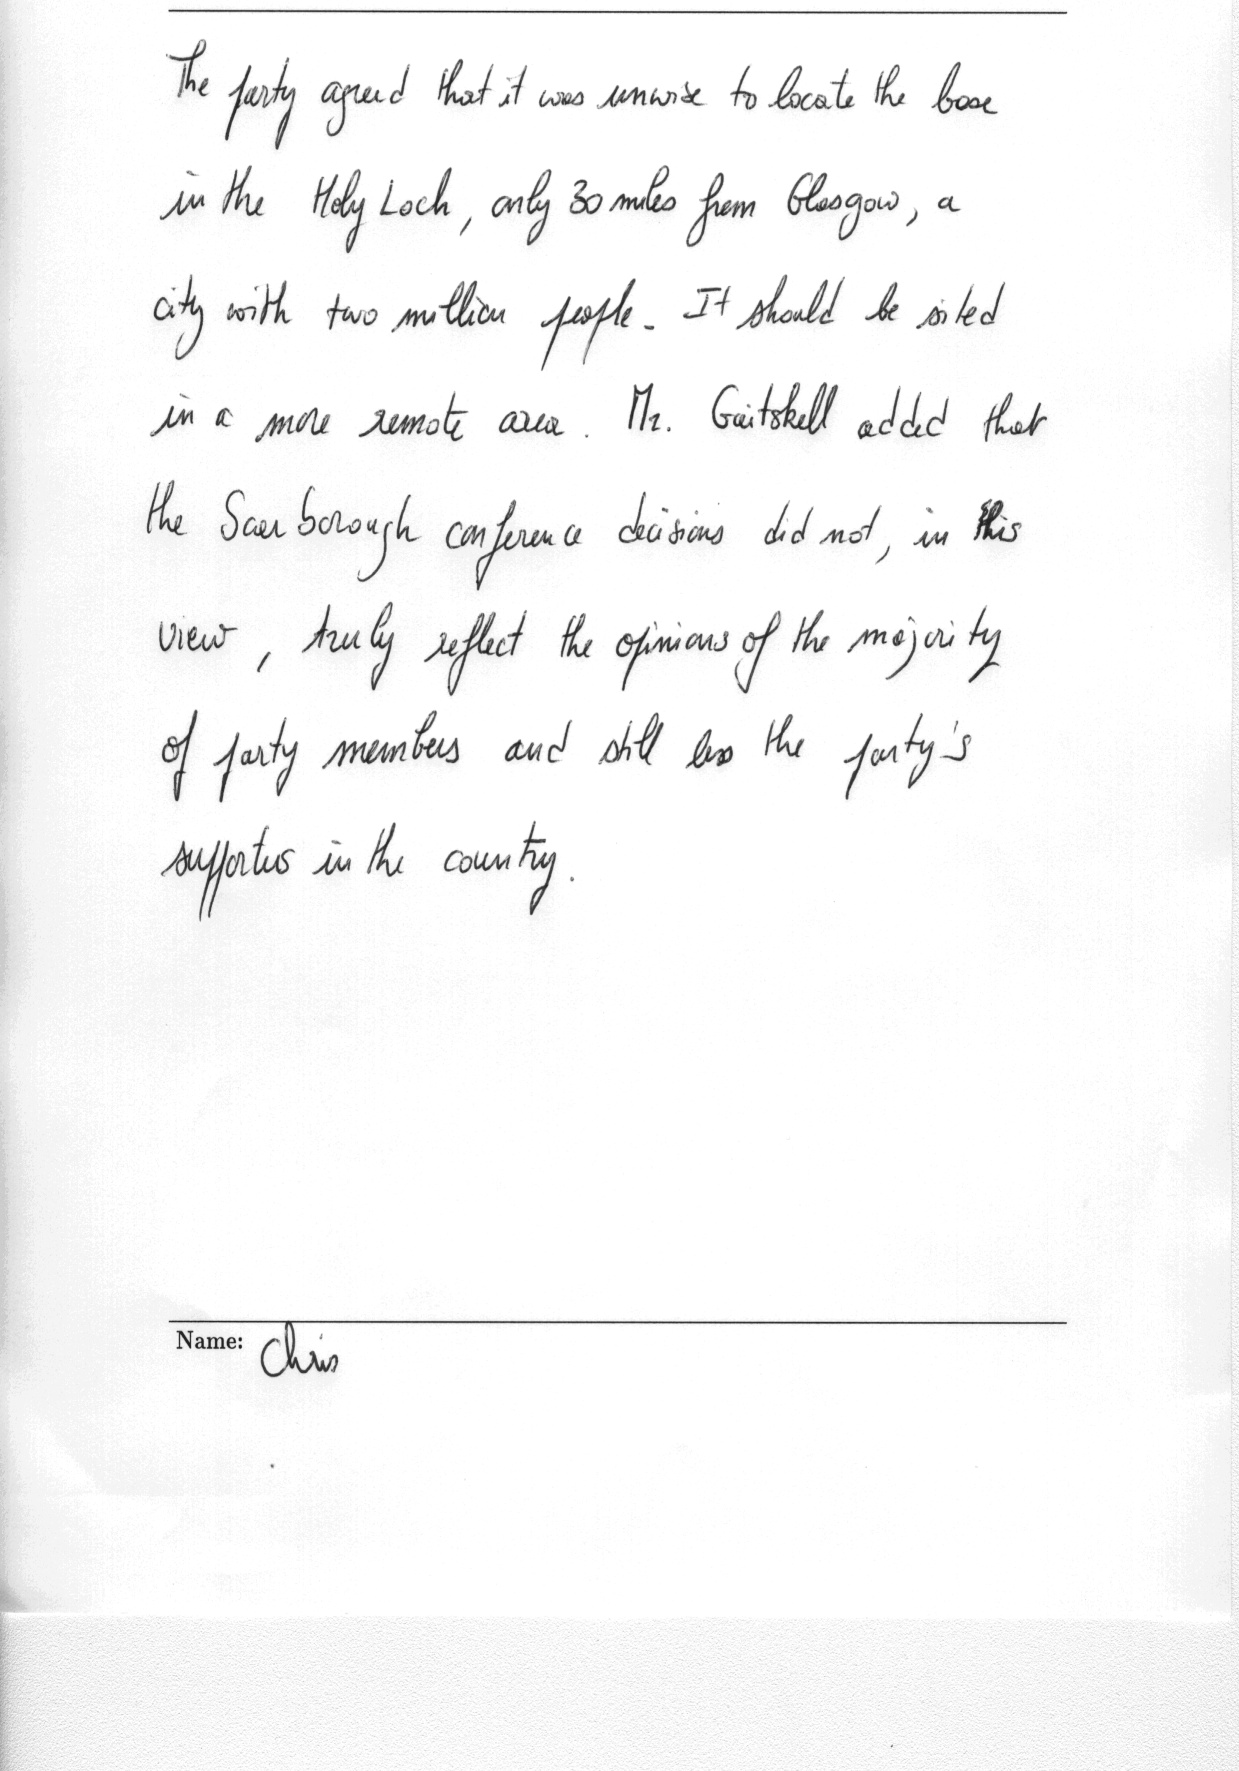 The party agreed that it was unwise to locate the base
in the Holy Loch, only 30 miles from Glasgow, a
city with two million people. It should be sited
in a more remote area. Mr. Gaitskell added that
the Scarborough conference decisions did not, in this
view, truly reflect the opinions of the majority
of party members and still less the party's
supporters in the country.
Name: Chris